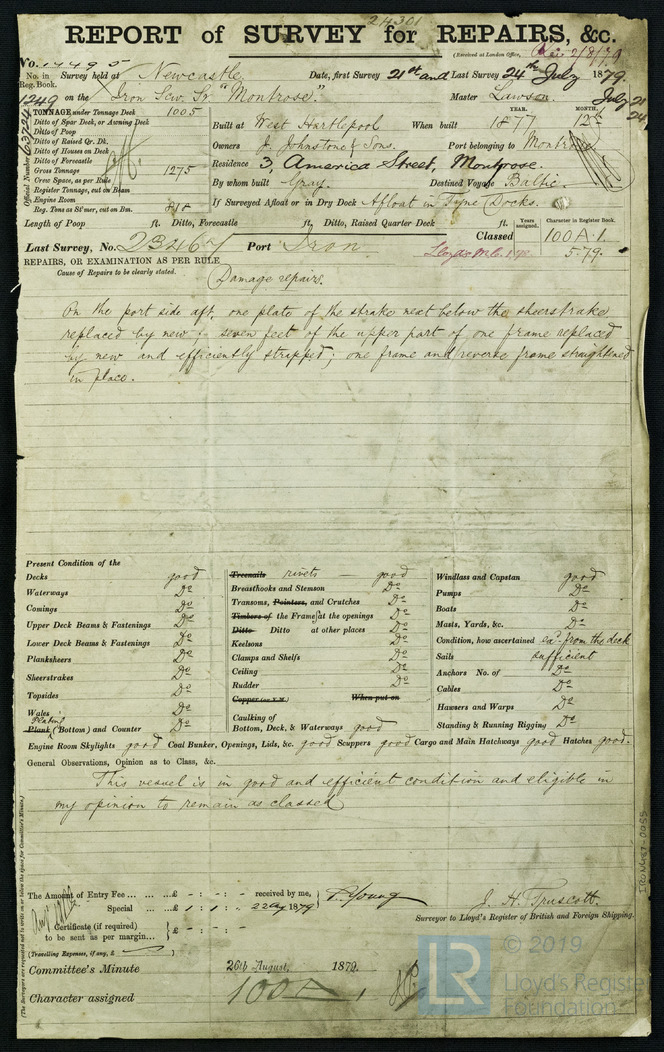 24301
REPORT of SURVEY for REPAIRS, &c.
(Received at London Office, 2/8/79
No. in Reg. Book. Survey held at Newcastle Date, first Survey 21st and Last Survey 24th July 1879.
1249 on the Iron Scw. Sr "Montrose." Master Lawson.
July 21 24
TONNAGE under Tonnage Deck 1005
Ditto of Spar Deck, or Awning Deck
Ditto of Poop
Ditto of Raised Qr. Dk.
Ditto of Houses on Deck
Ditto of Forecastle
Gross Tonnage 1275
Crew Space, as per Rule
Register Tonnage, cut on Beam
Engine Room
Reg. Tons as St'mer, cut on Bm. 818
Official Number
YEAR. MONTH.
Built at West Hartlepool When built 1877 12
Owners J. Johnstone & Sons. Port belonging to Montrose
Residence 3, America Street, Montrose.
By whom built Gray. Destined Voyage Baltic.
If Surveyed Afloat or in Dry Dock Afloat in Tyne Docks.
Length of Poop ft. Ditto, Forecastle ft. Ditto, Raised Quarter Deck ft. Years assigned. Character in Register Book.
Last Survey, No. 23467 Port Iron Classed 100A.1.
Lloyds M.C. 5-79.
REPAIRS, OR EXAMINATION AS PER RULE
Cause of Repairs to be clearly stated.
Damage repairs.
On the port side aft, one plate of the strake next below the sheerstrake
replaced by new; seven feet of the upper part of one frame replaced
by new and efficiently strapped; one frame and reverse frame straightened
in place.
Present Condition of the
Decks good
Waterways Do
Comings Do
Upper Deck Beams & Fastenings Do
Lower Deck Beams & Fastenings Do
Planksheers Do
Sheerstrakes Do
Topsides Do
Wales Do
Plating
Plank (Bottom) and Counter Do
Treenails rivets — good
Breasthooks and Stemson Do
Transoms, Pointers, and Crutches Do
Timbers of the Frame at the openings Do
Ditto Ditto at other places Do
Keelsons Do
Clamps and Shelfs Do
Ceiling Do
Rudder Do
Copper (or Y.M.) When put on
Caulking of
Bottom, Deck, & Waterways good
Windlass and Capstan good
Pumps Do
Boats Do
Masts, Yards, &c. Do
Condition, how ascertained exd. from the deck
Sails sufficient
Anchors No. of Do
Cables Do
Hawsers and Warps Do
Standing & Running Rigging Do
Engine Room Skylights good Coal Bunker, Openings, Lids, &c. good Scuppers good Cargo and Main Hatchways good Hatches good.
General Observations, Opinion as to Class, &c.
This vessel is in good and efficient condition and eligible in
my opinion to remain as classed
The Amount of Entry Fee ... ... ...£ - : - : - received by me,
Special ... ...£ 1 : 1 : - 22 Aug 1879 T. Young
Certificate (if required)
to be sent as per margin... £ - : - : -
(Travelling Expenses, if any, £
J. H. Truscott.
Surveyor to Lloyd's Register of British and Foreign Shipping.
Committee's Minute 26th August, 1879.
Character assigned 100 A 1
(The Surveyors are requested not to write on or below the space for Committee's Minute.)
IRON487-0055
LR
© 2019
Lloyd's Register
Foundation